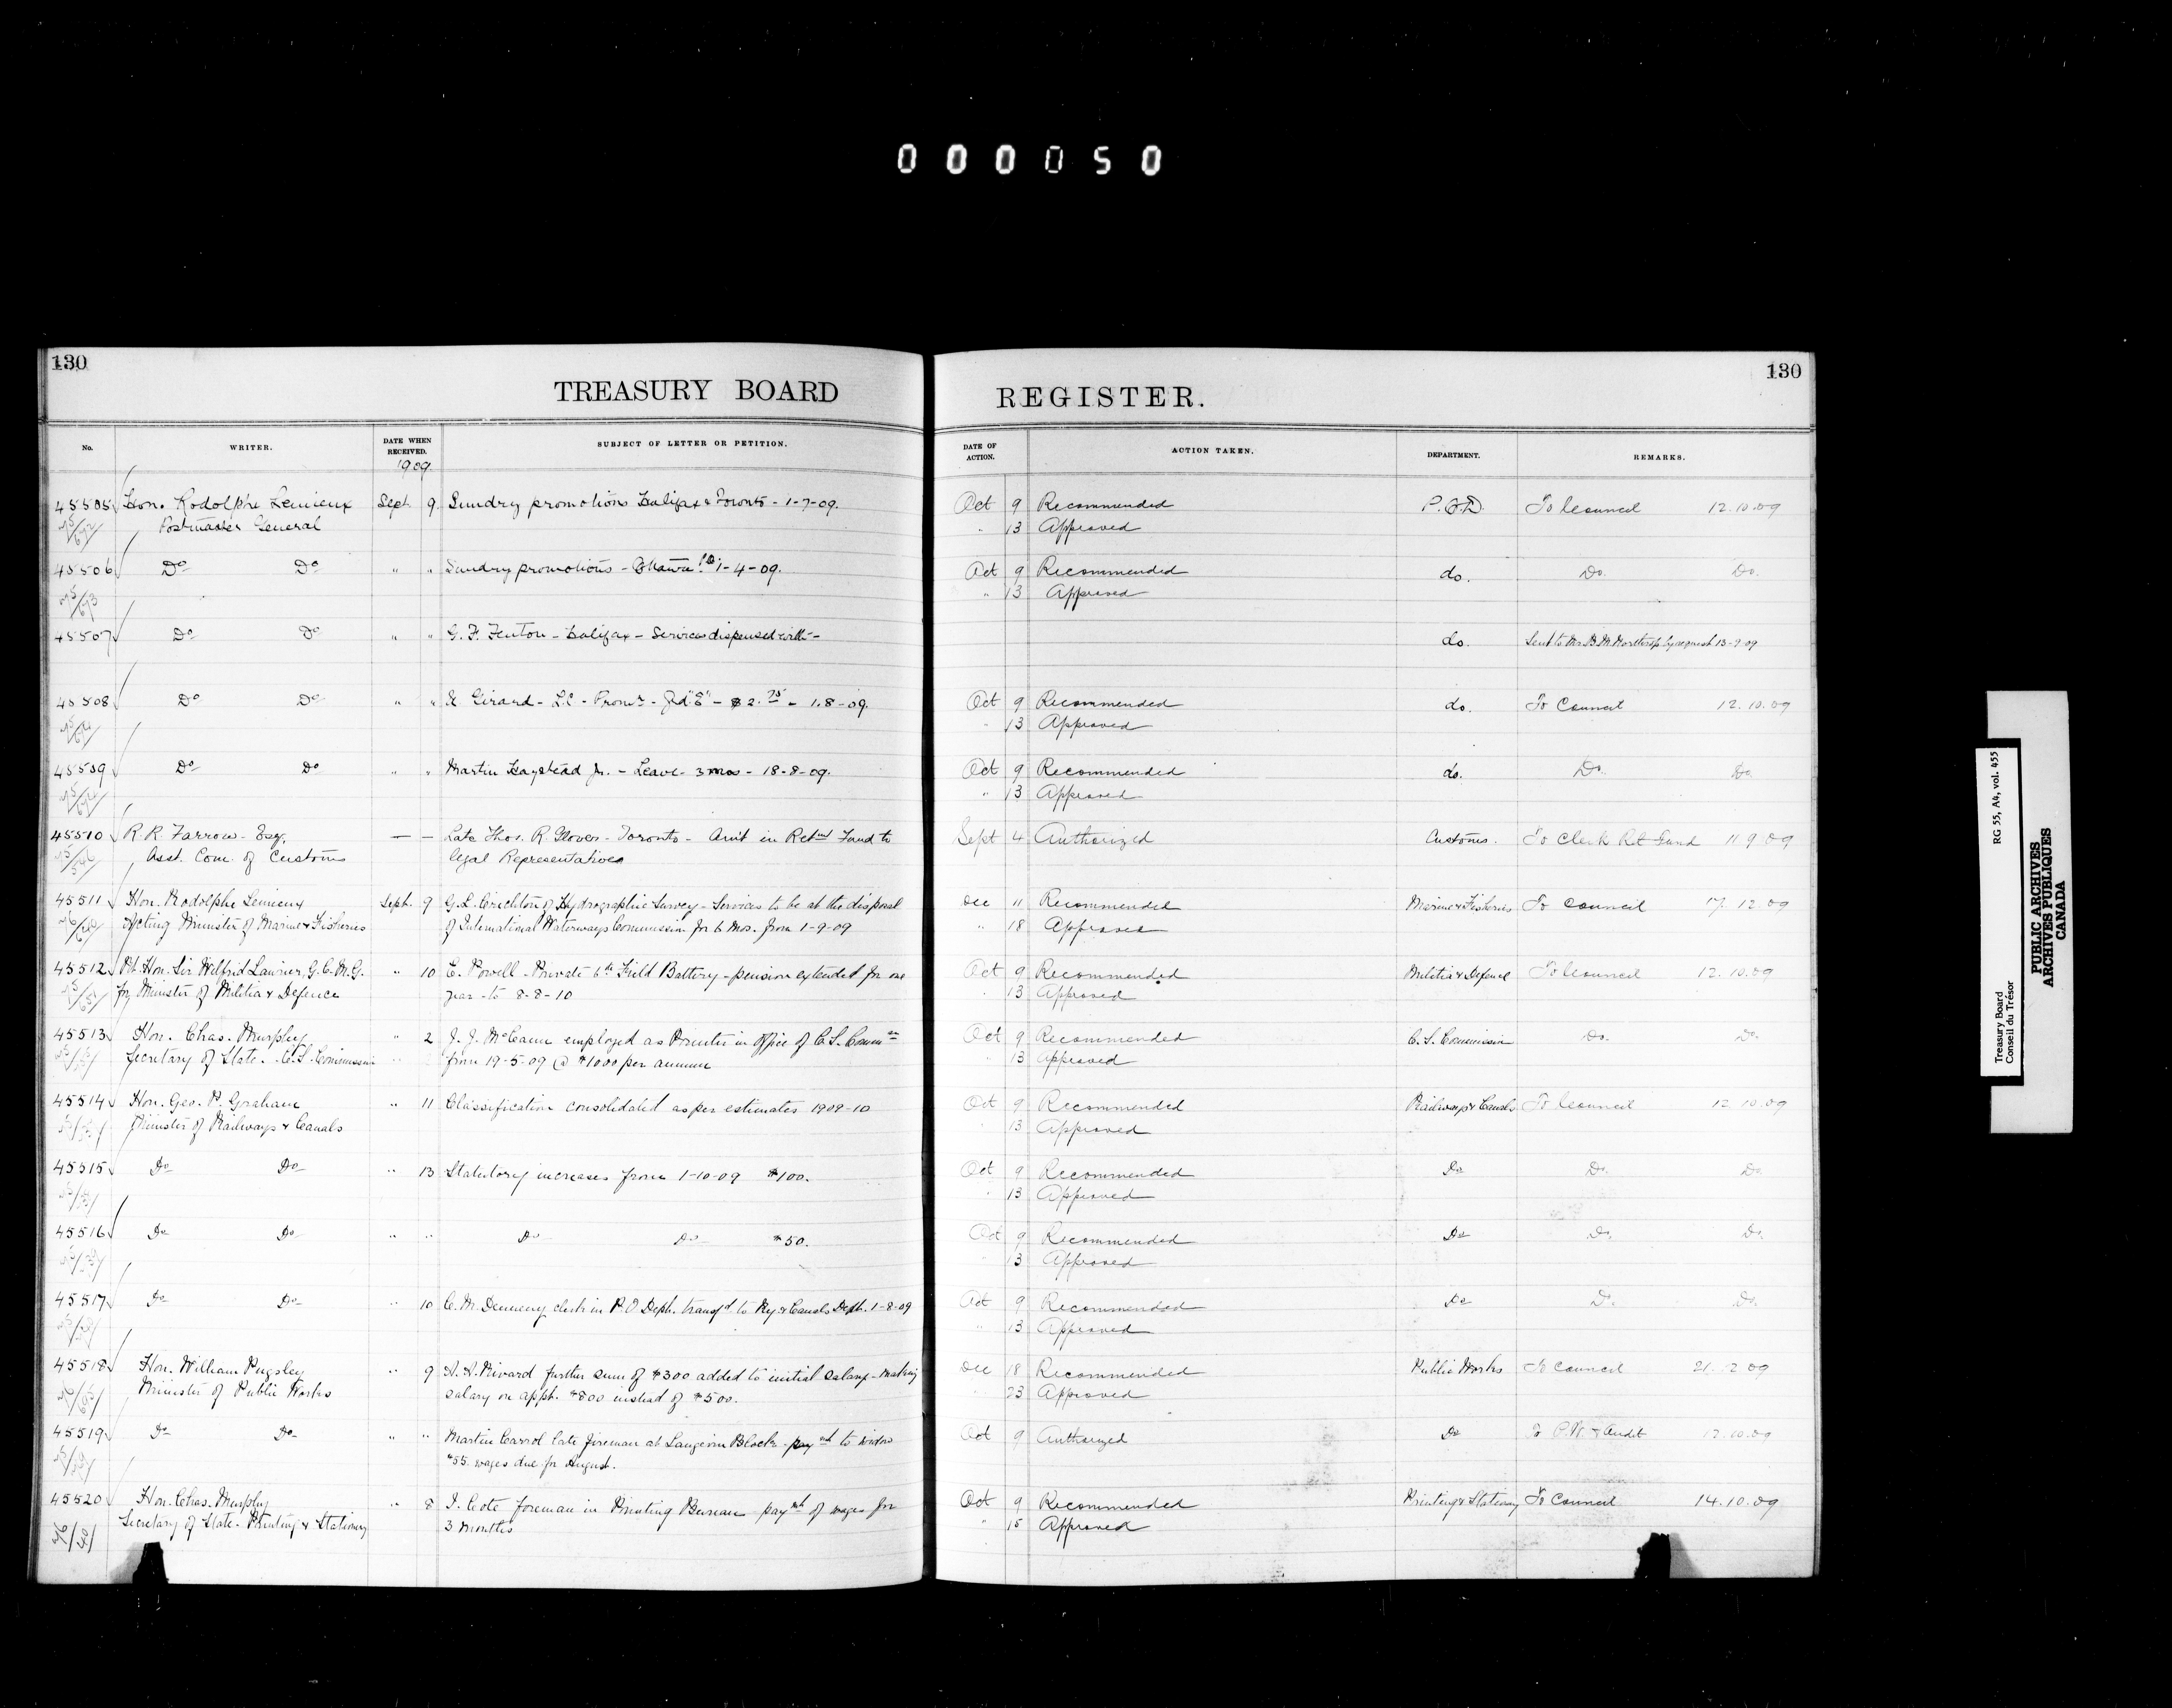 000050
130
130
TREASURY BOARD REGISTER.
No. WRITER. DATE WHEN RECEIVED. SUBJECT OF LETTER OR PETITION. DATE OF ACTION. ACTION TAKEN. DEPARTMENT. REMARKS.
1909
45505 Hon. Rodolphe Lemieux Sept 9 Sundry promotions Halifax & Toronto - 1-7-09. Oct 9 Recommended P.O.D. To Council 12.10.09
Postmaster General " 13 Approved
45506 Do Do " " Sundry promotions - Ottawa 1-4-09. Oct 9 Recommended do. Do. Do.
" 13 Approved
45507 Do Do " " G. F. Fenton - Halifax - Services dispensed with - do. Sent to Mr. B. M. Northrop by request 13-9-09
45508 Do Do " " Girard - L.C - Prom's - Gd "E" - $2.75 - 1-8-09. Oct 9 Recommended do. To Council 12.10.09
" 13 Approved
45509 Do Do " " Martin Haystead Jr. - Leave - 3 mos - 18-8-09. Oct 9 Recommended do. Do. Do.
" 13 Approved
45510 R. R. Farrow - Esq. — — Late Thos. R. Glover - Toronto - Amt in Retmt Fund to Sept 4 Authorized Customs. To Clerk Ret Fund 11 9 09
Asst. Com. of Customs legal Representatives
45511 Hon. Rodolphe Lemieux Sept. 9 G. L. Crichton of Hydrographic Survey - Services to be at the disposal Dec 11 Recommended Marine & Fisheries To Council 17.12.09
Acting Minister of Marine & Fisheries of International Waterways Commission for 6 Mos. from 1-9-09 " 18 Approved
45512 Rt. Hon. Sir Wilfrid Laurier, G.C.M.G. " 10 E. Powell - Private 6th Field Battery - pension extended for one Oct 9 Recommended Militia & Defence To Council 12.10.09
for Minister of Militia & Defence year - to 8-8-10 " 13 Approved
45513 Hon. Chas. Murphy " 2 J. J. McCann employed as Printer in office of C. S. Commn Oct 9 Recommended C. S. Commission Do. Do.
Secretary of State - C. S. Commission from 19-5-09 @ $1000 per annum " 13 Approved
45514 Hon. Geo. P. Graham " 11 Classification consolidated as per estimates 1909-10 Oct 9 Recommended Railways & Canals To Council 12.10.09
Minister of Railways & Canals " 13 Approved
45515 Do Do " 13 Statutory increases from 1-10-09 $100. Oct 9 Recommended Do Do. Do.
" 13 Approved
45516 Do Do " " Do Do $50. Oct 9 Recommended Do Do. Do.
" 13 Approved
45517 Do Do " 10 C. M. Dennery clerk in P.O Dept. transfd to Ry & Canals Dept. 1-8-09 Oct 9 Recommended Do Do. Do.
" 13 Approved
45518 Hon. William Pugsley " 9 A. A. Rivard further sum of $300 added to initial salary - making Dec 18 Recommended Public Works To Council 21.12.09
Minister of Public Works salary on appt. $800 instead of $500. 23 Approved
45519 Do Do " " Martin Carrol late fireman at Langevin Block - paymt to widow Oct 9 Authorized Do To P.W. & Audit 12.10.09
$55. wages due for August.
45520 Hon. Chas. Murphy " 8 J. Cote foreman in Printing Bureau - paymt of wages for Oct 9 Recommended Printing & Stationy To Council 14.10.09
Secretary of State - Printing & Stationery 3 Months " 15 Approved
Treasury Board RG 55, A4, vol. 455
Conseil du Trésor
PUBLIC ARCHIVES
ARCHIVES PUBLIQUES
CANADA